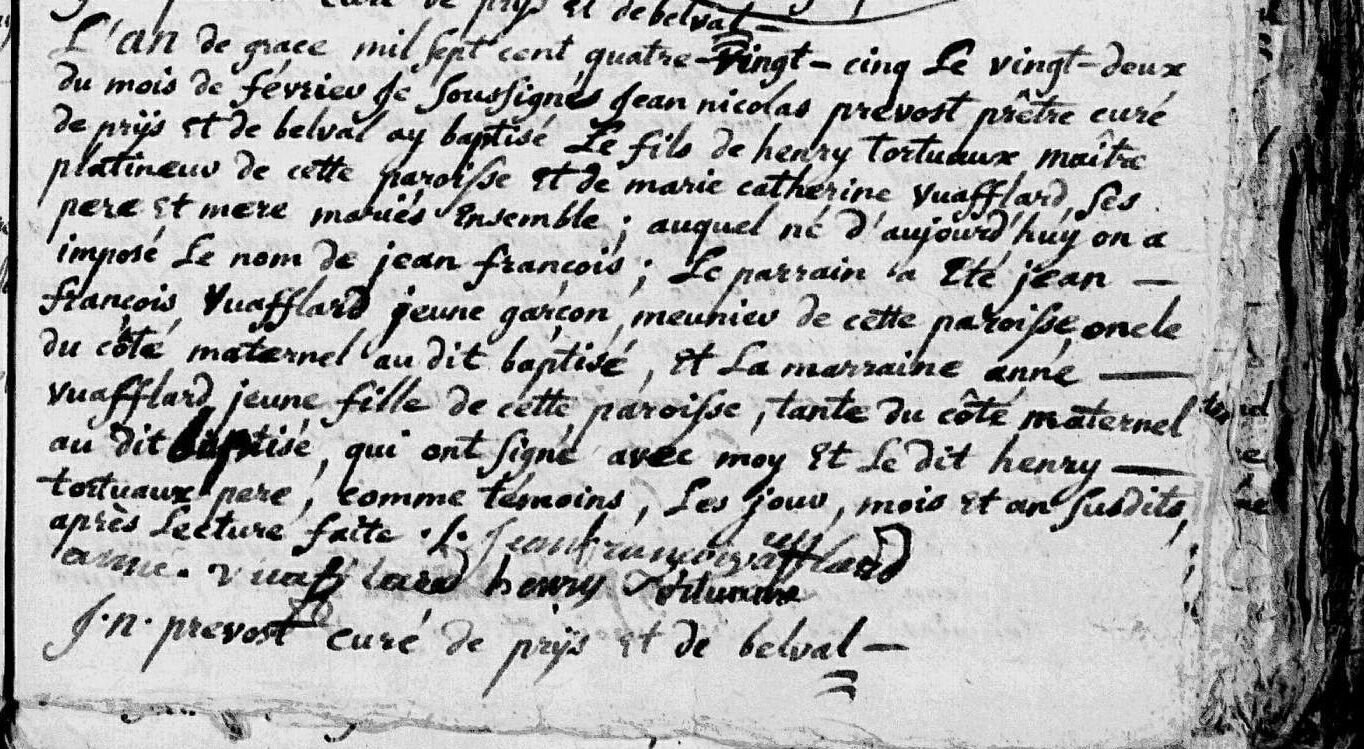 curé de prijs et de belval —
L'an de grace mil sept cent quatre-vingt-cinq Le vingt-deux
du mois de février Je soussignés Jean nicolas prevost prêtre curé
de prijs et de belval ay baptisé Le fils de henry tortuaux maître
platineur de cette paroisse et de marie catherine Vuafflard, ses
pere et mere mariés ensemble ; auquel né d'aujourd'huy on a
imposé Le nom de jean françois ; Le parrain a été jean —
françois Vuafflard jeune garçon, meunier de cette paroisse, oncle
du côté maternel au dit baptisé, et La marraine anne —
vuafflard jeune fille de cette paroisse, tante du côté maternel
au dit baptisé, qui ont signé avec moy et Le dit henry —
tortuaux pere, comme témoins, Les jour, mois et an susdits,
après Lecture faite ./. Jean françois vuafflard
anne . vuafflard henry
J.n. prevost curé de prijs et de belval —